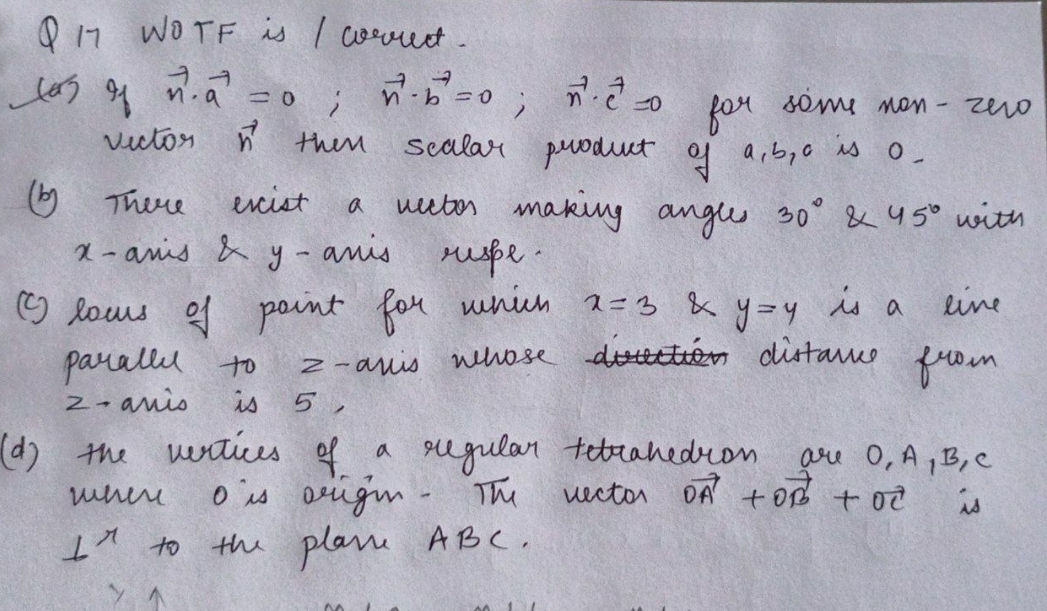 Q 17 WOTF is / correct.
(a) If n⃗.a⃗ = 0 ; n⃗.b⃗ = 0 ; n⃗.c⃗ = 0 for some non-zero
vector n⃗ then scalar product of a,b,c is 0.
(b) There exist a vector making angles 30° & 45° with
x-axis & y-axis respe.
(c) locus of point for which x=3 & y=4 is a line
parallel to z-axis whose direction distance from
z-axis is 5,
(d) the vertices of a regular tetrahedron are O,A,B,C
where O is origin. The vector OA⃗ + OB⃗ + OC⃗ is
⊥r to the plane ABC.